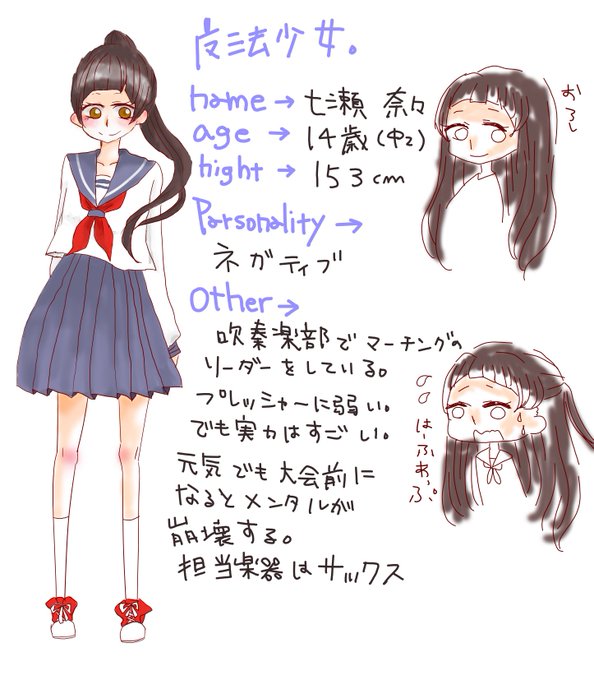 皮法少女。
name→ 七瀬 奈々
age→ 14歳(中2)
hight→ 153cm
Parsonality→
ネガティブ
Other→
吹奏楽部でマーチングの
リーダーをしている。
プレッシャーに弱い。
でも実力はすごい。
元気でも大会前に
なるとメンタルが
崩壊する。
担当楽器はサックス
おろし